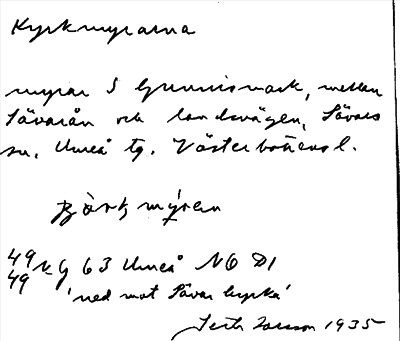 Kyrkmyrarna
myrar S Gunnismark, mellan
Sävarån och landsvägen, Sävars
sn, Umeå tg. Västerbottens l.
Björkmyren
49 v g 63 Umeå NO D1
49
'ned mot Sävar kyrka'
1935